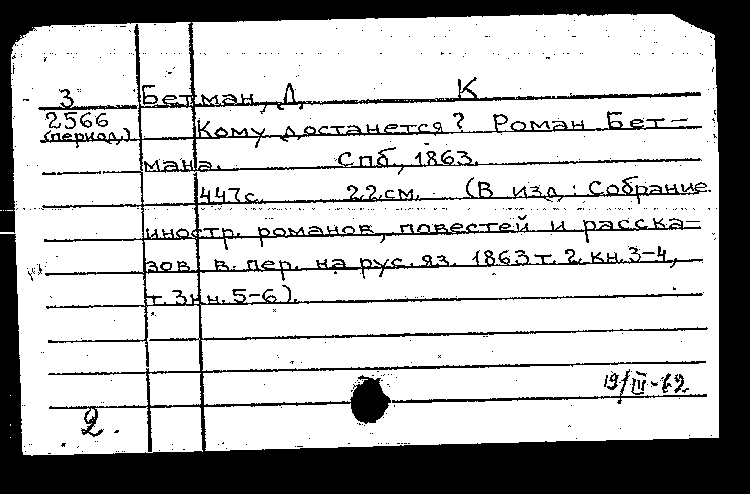 3 Бетман, Д. К
2566 Кому достанется? Роман Бет-
(период.)
мана. Спб., 1863.
447с. 22см. (В изд.: Собрание
иностр. романов, повестей и расска-
зов в пер. на рус. яз. 1863 т. 2 кн. 3-4,
т. 3 кн. 5-6).
19/III-62
2.